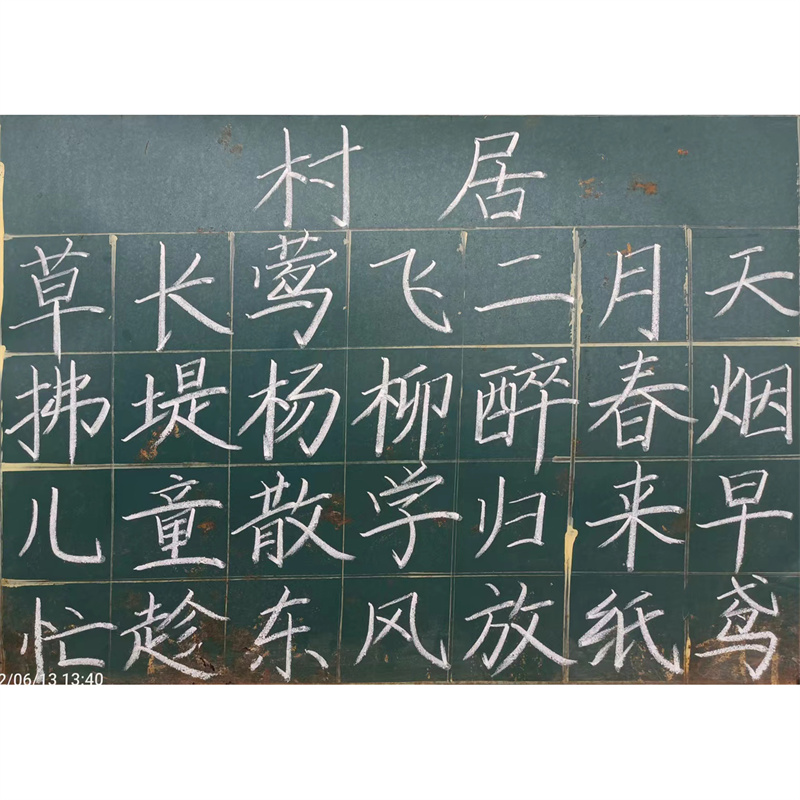 村居
草长莺飞二月天
拂堤杨柳醉春烟
儿童散学归来早
忙趁东风放纸鸢
2/06/13 13:40